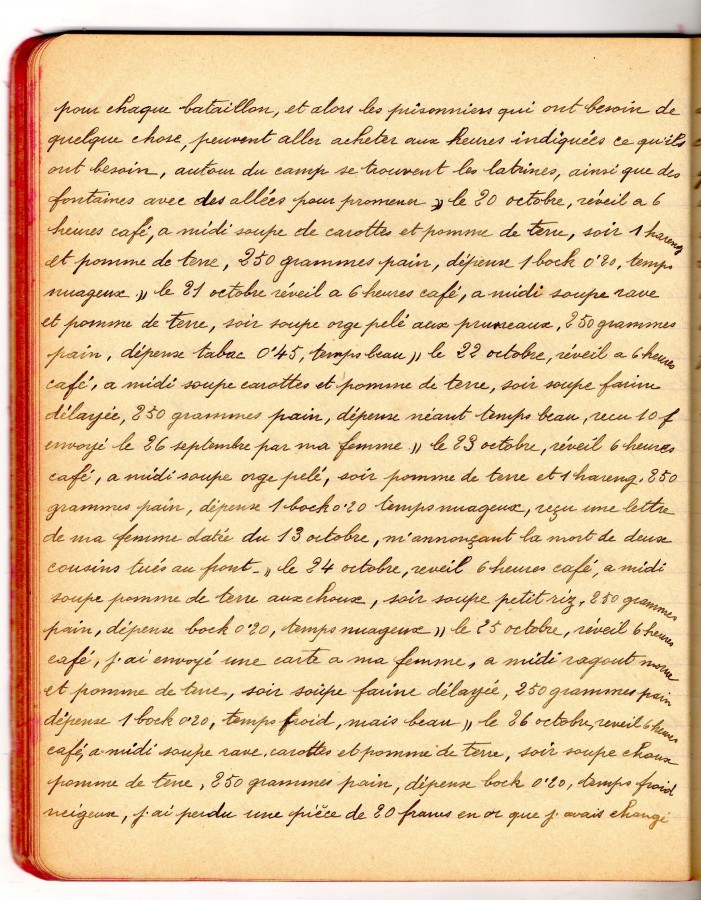 pour chaque bataillon, et alors les prisonniers qui ont besoin de
quelque chose, peuvent aller acheter aux heures indiquées ce qu'ils
ont besoin, autour du camp se trouvent les latrines, ainsi que des
fontaines avec des allées pour promener » le 20 octobre, réveil a 6
heures café, a midi soupe de carottes et pomme de terre, soir 1 hareng
et pomme de terre, 250 grammes pain, dépense 1 bock 0'20, temps
nuageux » le 21 octobre réveil a 6 heures café, a midi soupe rave
et pomme de terre, soir soupe orge pelé aux pruneaux, 250 grammes
pain, dépense tabac 0'45, temps beau » le 22 octobre, réveil a 6 heures
café, a midi soupe carottes et pomme de terre, soir soupe farine
délayée, 250 grammes pain, dépense néant temps beau, recu 10 f
envoyé le 26 septembre par ma femme » le 23 octobre, réveil 6 heures
café, a midi soupe orge pelé, soir pomme de terre et 1 hareng, 250
grammes pain, dépense 1 bock 0'20 temps nuageux, reçu une lettre
de ma femme datée du 13 octobre, m'annonçant la mort de deux
cousins tués au front - » le 24 octobre, reveil 6 heures café, a midi
soupe pomme de terre aux choux, soir soupe petit riz, 250 grammes
pain, dépense bock 0'20, temps nuageux » le 25 octobre, réveil 6 heures
café, j'ai envoyé une carte a ma femme, a midi ragout morue
et pomme de terre, soir soupe farine délayée, 250 grammes pain
dépense 1 bock 0'20, temps froid, mais beau » le 26 octobre, reveil 6 heures
café, a midi soupe rave, carottes et pomme de terre, soir soupe choux
pomme de terre, 250 grammes pain, dépense bock 0'20, temps froid
neigeux, j'ai perdu une pièce de 20 francs en or que j'avais changé